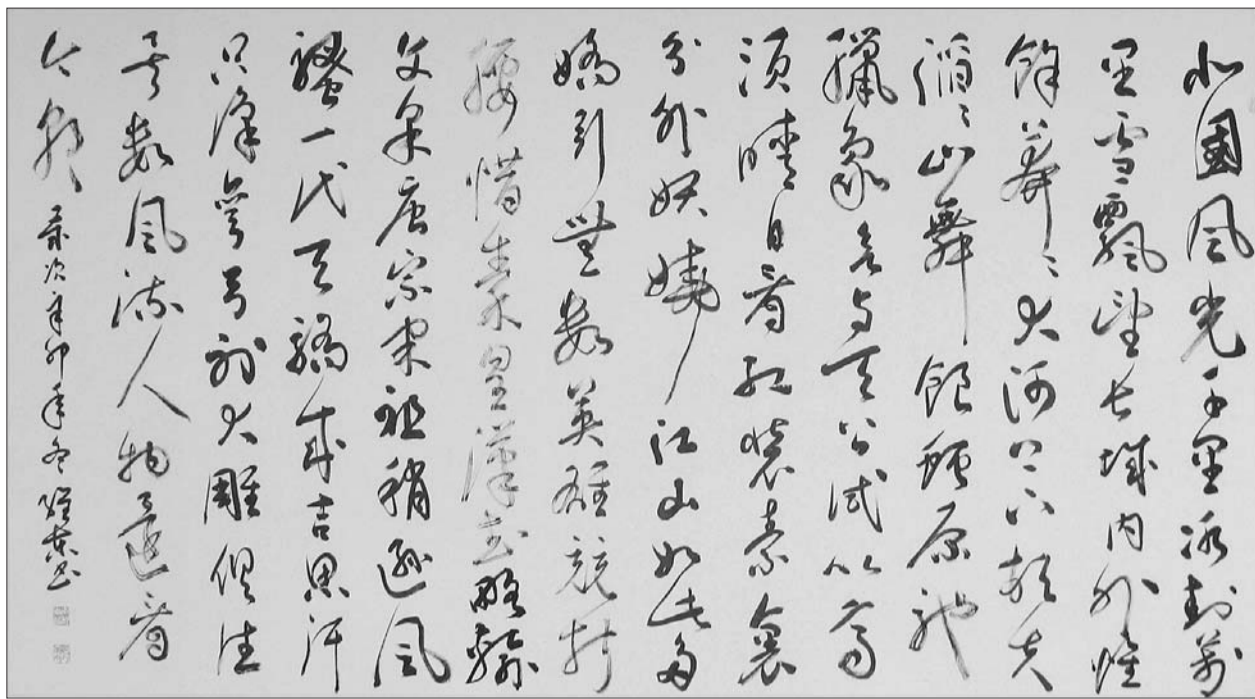 北國風光千里冰封萬
里雪飄望長城内外惟
餘莽〻大河上下頓失
滔〻山舞銀蛇原馳
臘象欲與天公試比高
須晴日看紅裝素裹
分外妖嬈江山如此多
嬌引無數英雄競折
腰惜秦皇漢武略輸
文采唐宗宋祖稍遜風
騷一代天驕成吉思汗
只識彎弓射大雕俱往
矣數風流人物還看
今朝 歲次辛卯年冬 書